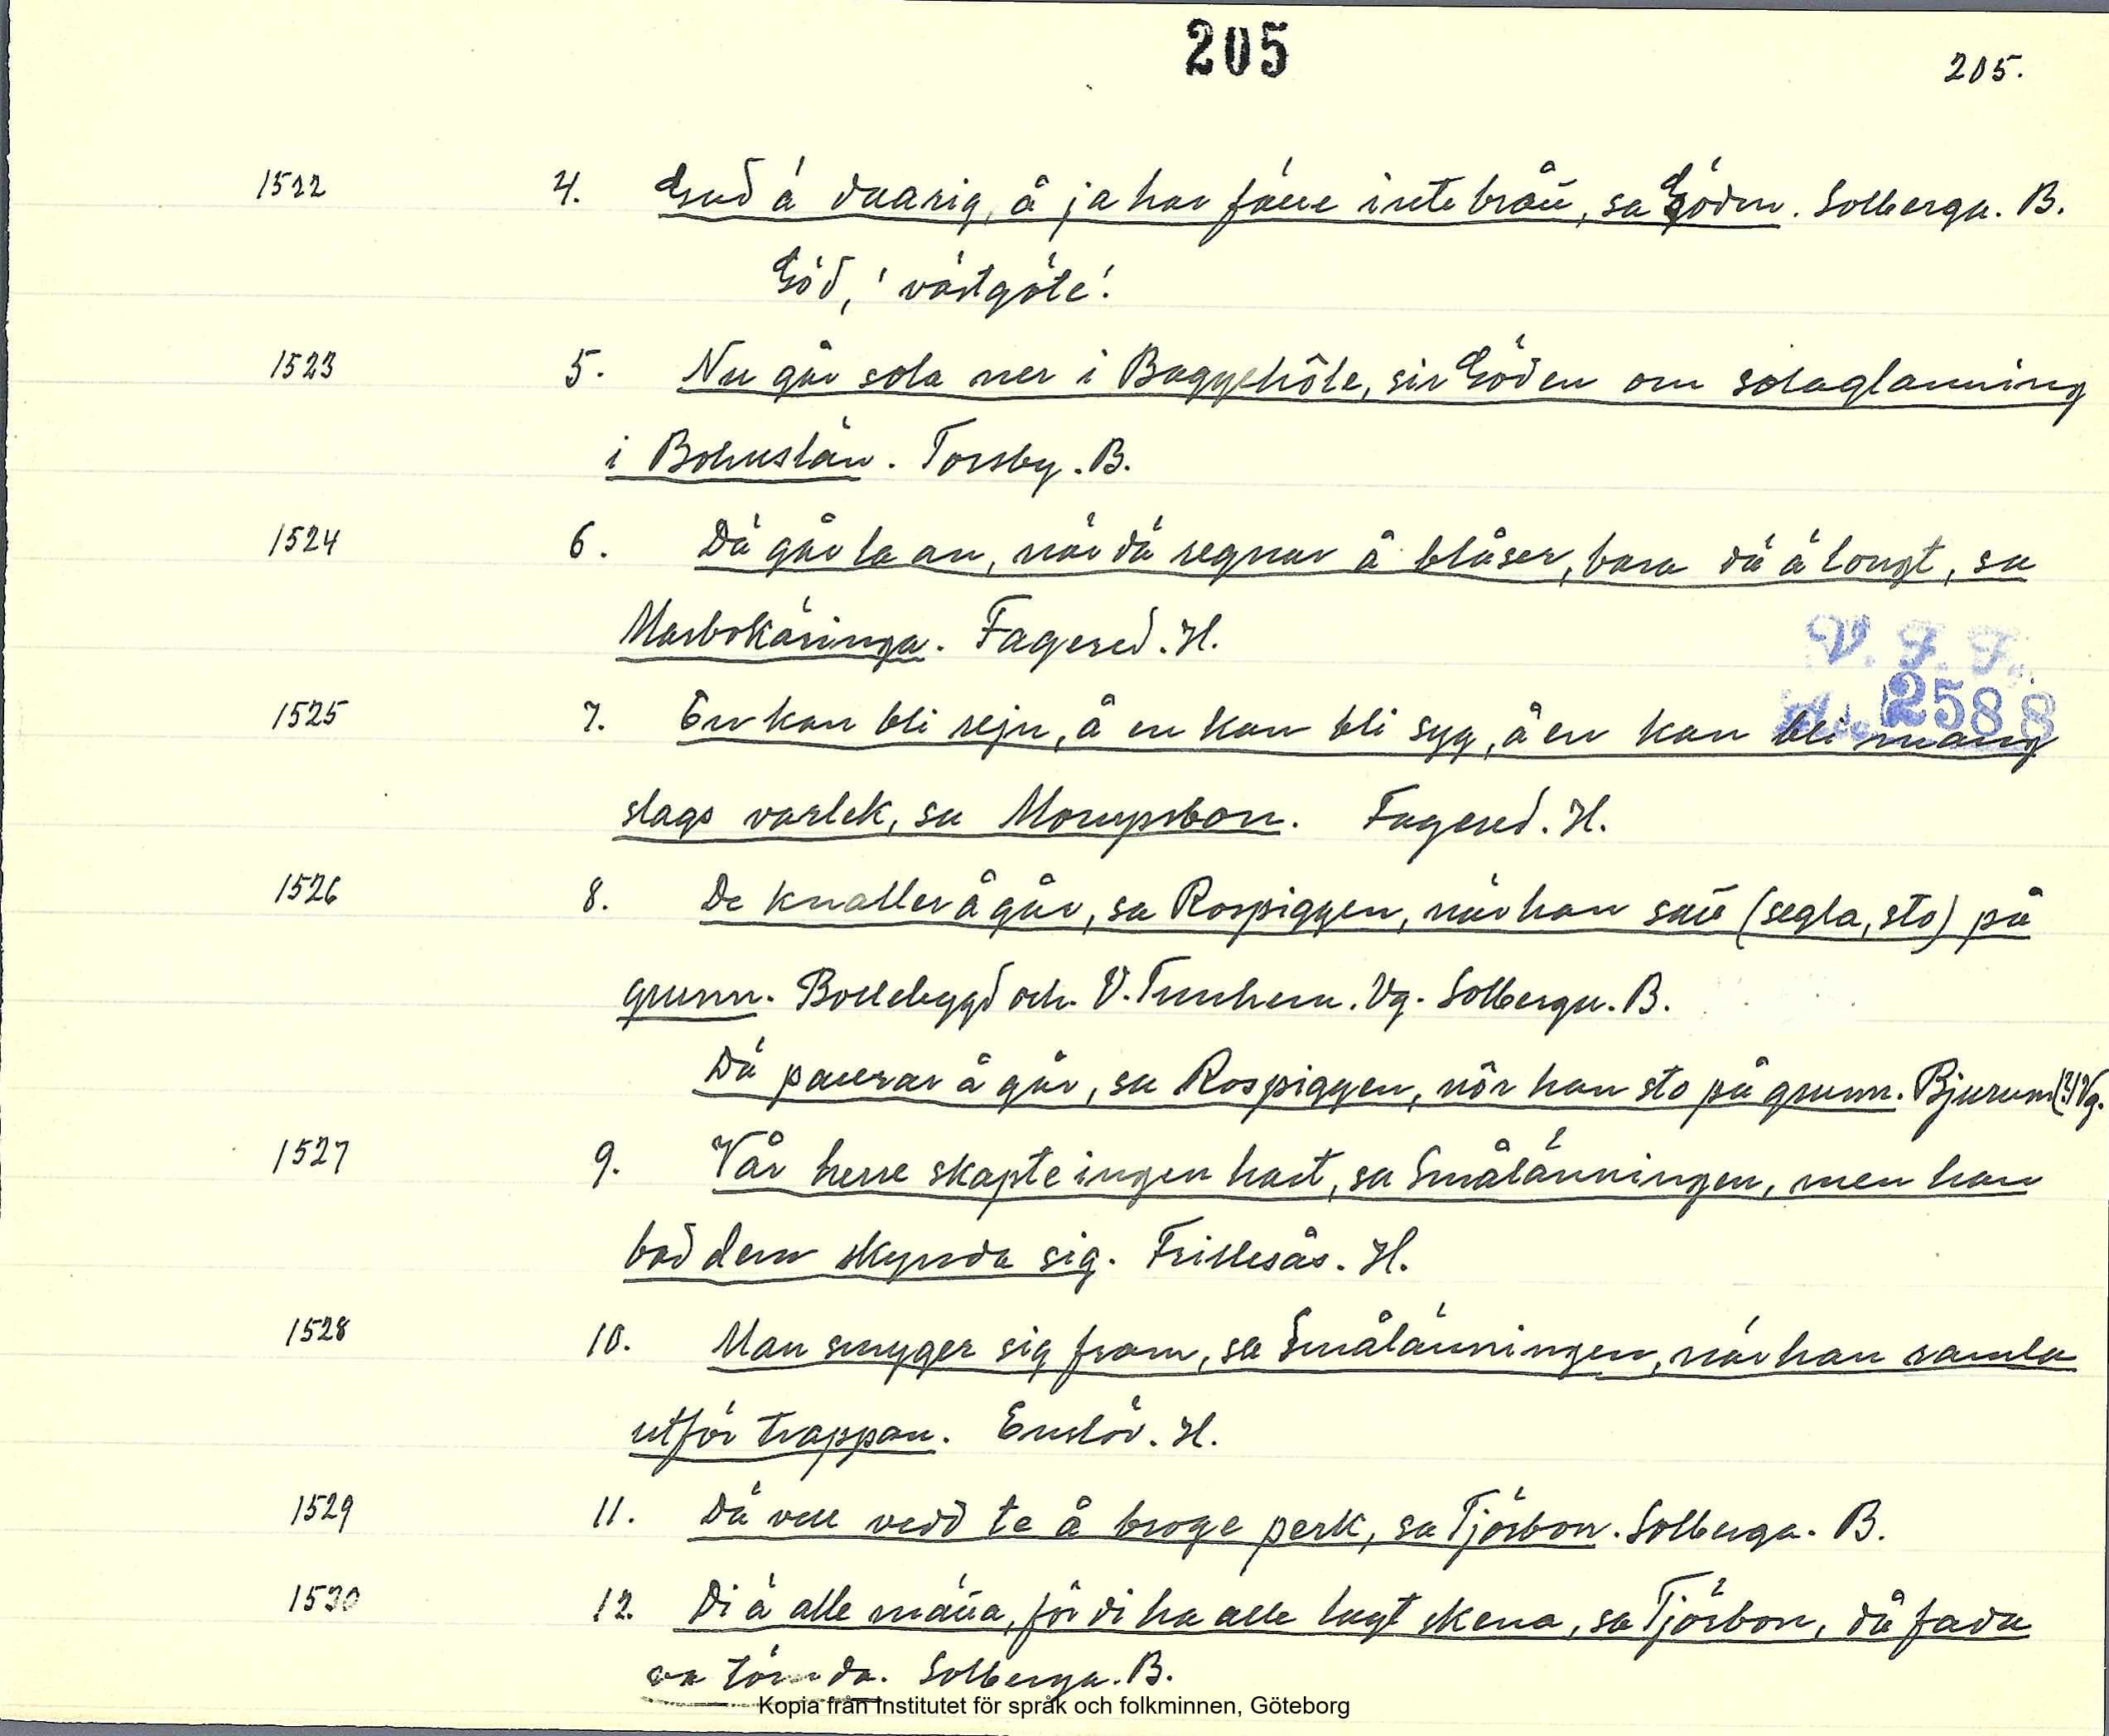 205
205.
1522 4. Gud ä daarig, å ja har fåue inte bråu, sa Göden. Solberga. B.
Göd, 'västgöte'.
1523 5. Nu går sola ner i Baggehôle, sir Göden om solaglanning
i Bohuslän. Torsby. B.
1524 6. Dä går la an, när dä regnar å blåser, bara dä ä longt, sa
Marbokäringa. Fagered. H.
V. F. F.
2588
1525 7. En kan bli rejn, å en kan bli syg, å en kan bli mång
slags varlek, sa Morupsbon. Fagered. H.
1526 8. De knaller å går, sa Rospiggen, när han satt (segla, sto) på
grunn. Bollebygd och V. Tunhem. Vg. Solberga. B.
Dä pausar å går, sa Rospiggen, nôr han sto på grunn. Bjurum (?) Vg.
1527 9. Vår herre skapte ingen hast, sa Smålänningen, men han
bad dem skynda sig. Frillesås. H.
1528 10. Man smyger sig fram, sa Smålänningen, när han ramla
utför trappan. Enslöv. H.
1529 11. Dä vell vedd te å broge perk, sa Tjörbon. Solberga. B.
1530 12. Di ä alle mäua, för di ha alle lagt skena, sa Tjörbon, då fada
va tömda. Solberga. B.
Kopia från Institutet för språk och folkminnen, Göteborg